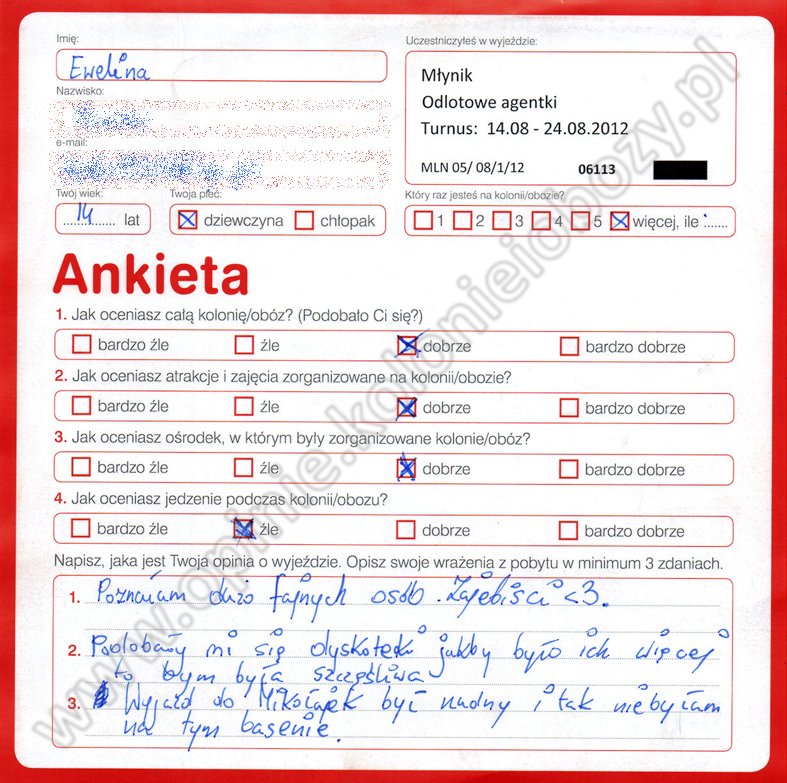 Imię:
Ewelina
Nazwisko:
e-mail:
Twój wiek:
14 lat
Twoja płeć:
dziewczyna chłopak
Uczestniczyłeś w wyjeździe:
Młynik
Odlotowe agentki
Turnus: 14.08 - 24.08.2012
MLN 05/ 08/1/12 06113
Który raz jesteś na kolonii/obozie?
1 2 3 4 5 więcej, ile .......
Ankieta
1. Jak oceniasz całą kolonię/obóz? (Podobało Ci się?)
bardzo źle źle dobrze bardzo dobrze
2. Jak oceniasz atrakcje i zajęcia zorganizowane na kolonii/obozie?
bardzo źle źle dobrze bardzo dobrze
3. Jak oceniasz ośrodek, w którym były zorganizowane kolonie/obóz?
bardzo źle źle dobrze bardzo dobrze
4. Jak oceniasz jedzenie podczas kolonii/obozu?
bardzo źle źle dobrze bardzo dobrze
Napisz, jaka jest Twoja opinia o wyjeździe. Opisz swoje wrażenia z pobytu w minimum 3 zdaniach.
1. Poznałam dużo fajnych osób. Zajebiści <3.
2. Podobały mi się dyskoteki jakby było ich więcej
to bym była szczęśliwa
3. Wyjazd do Mikołajek był nudny i tak niebyłam
na tym basenie.
www.opinie.kolonieiobozy.pl